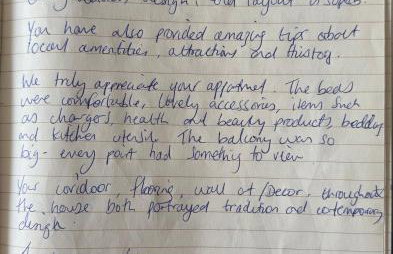 design, and layout is superb.
You have also povided amazing tips about
local amentities, attractions and history.
We truly appreciate your appartment. The beds
were comfortable, lovely accessories, items such
as chargers, health and beauty products, bedding
and kitchen utensils. The balcony was so
big - every part had something to view
Your corridoor, flooring, wall art/Decor, throughout
the house both portrayed tradition and contemporary